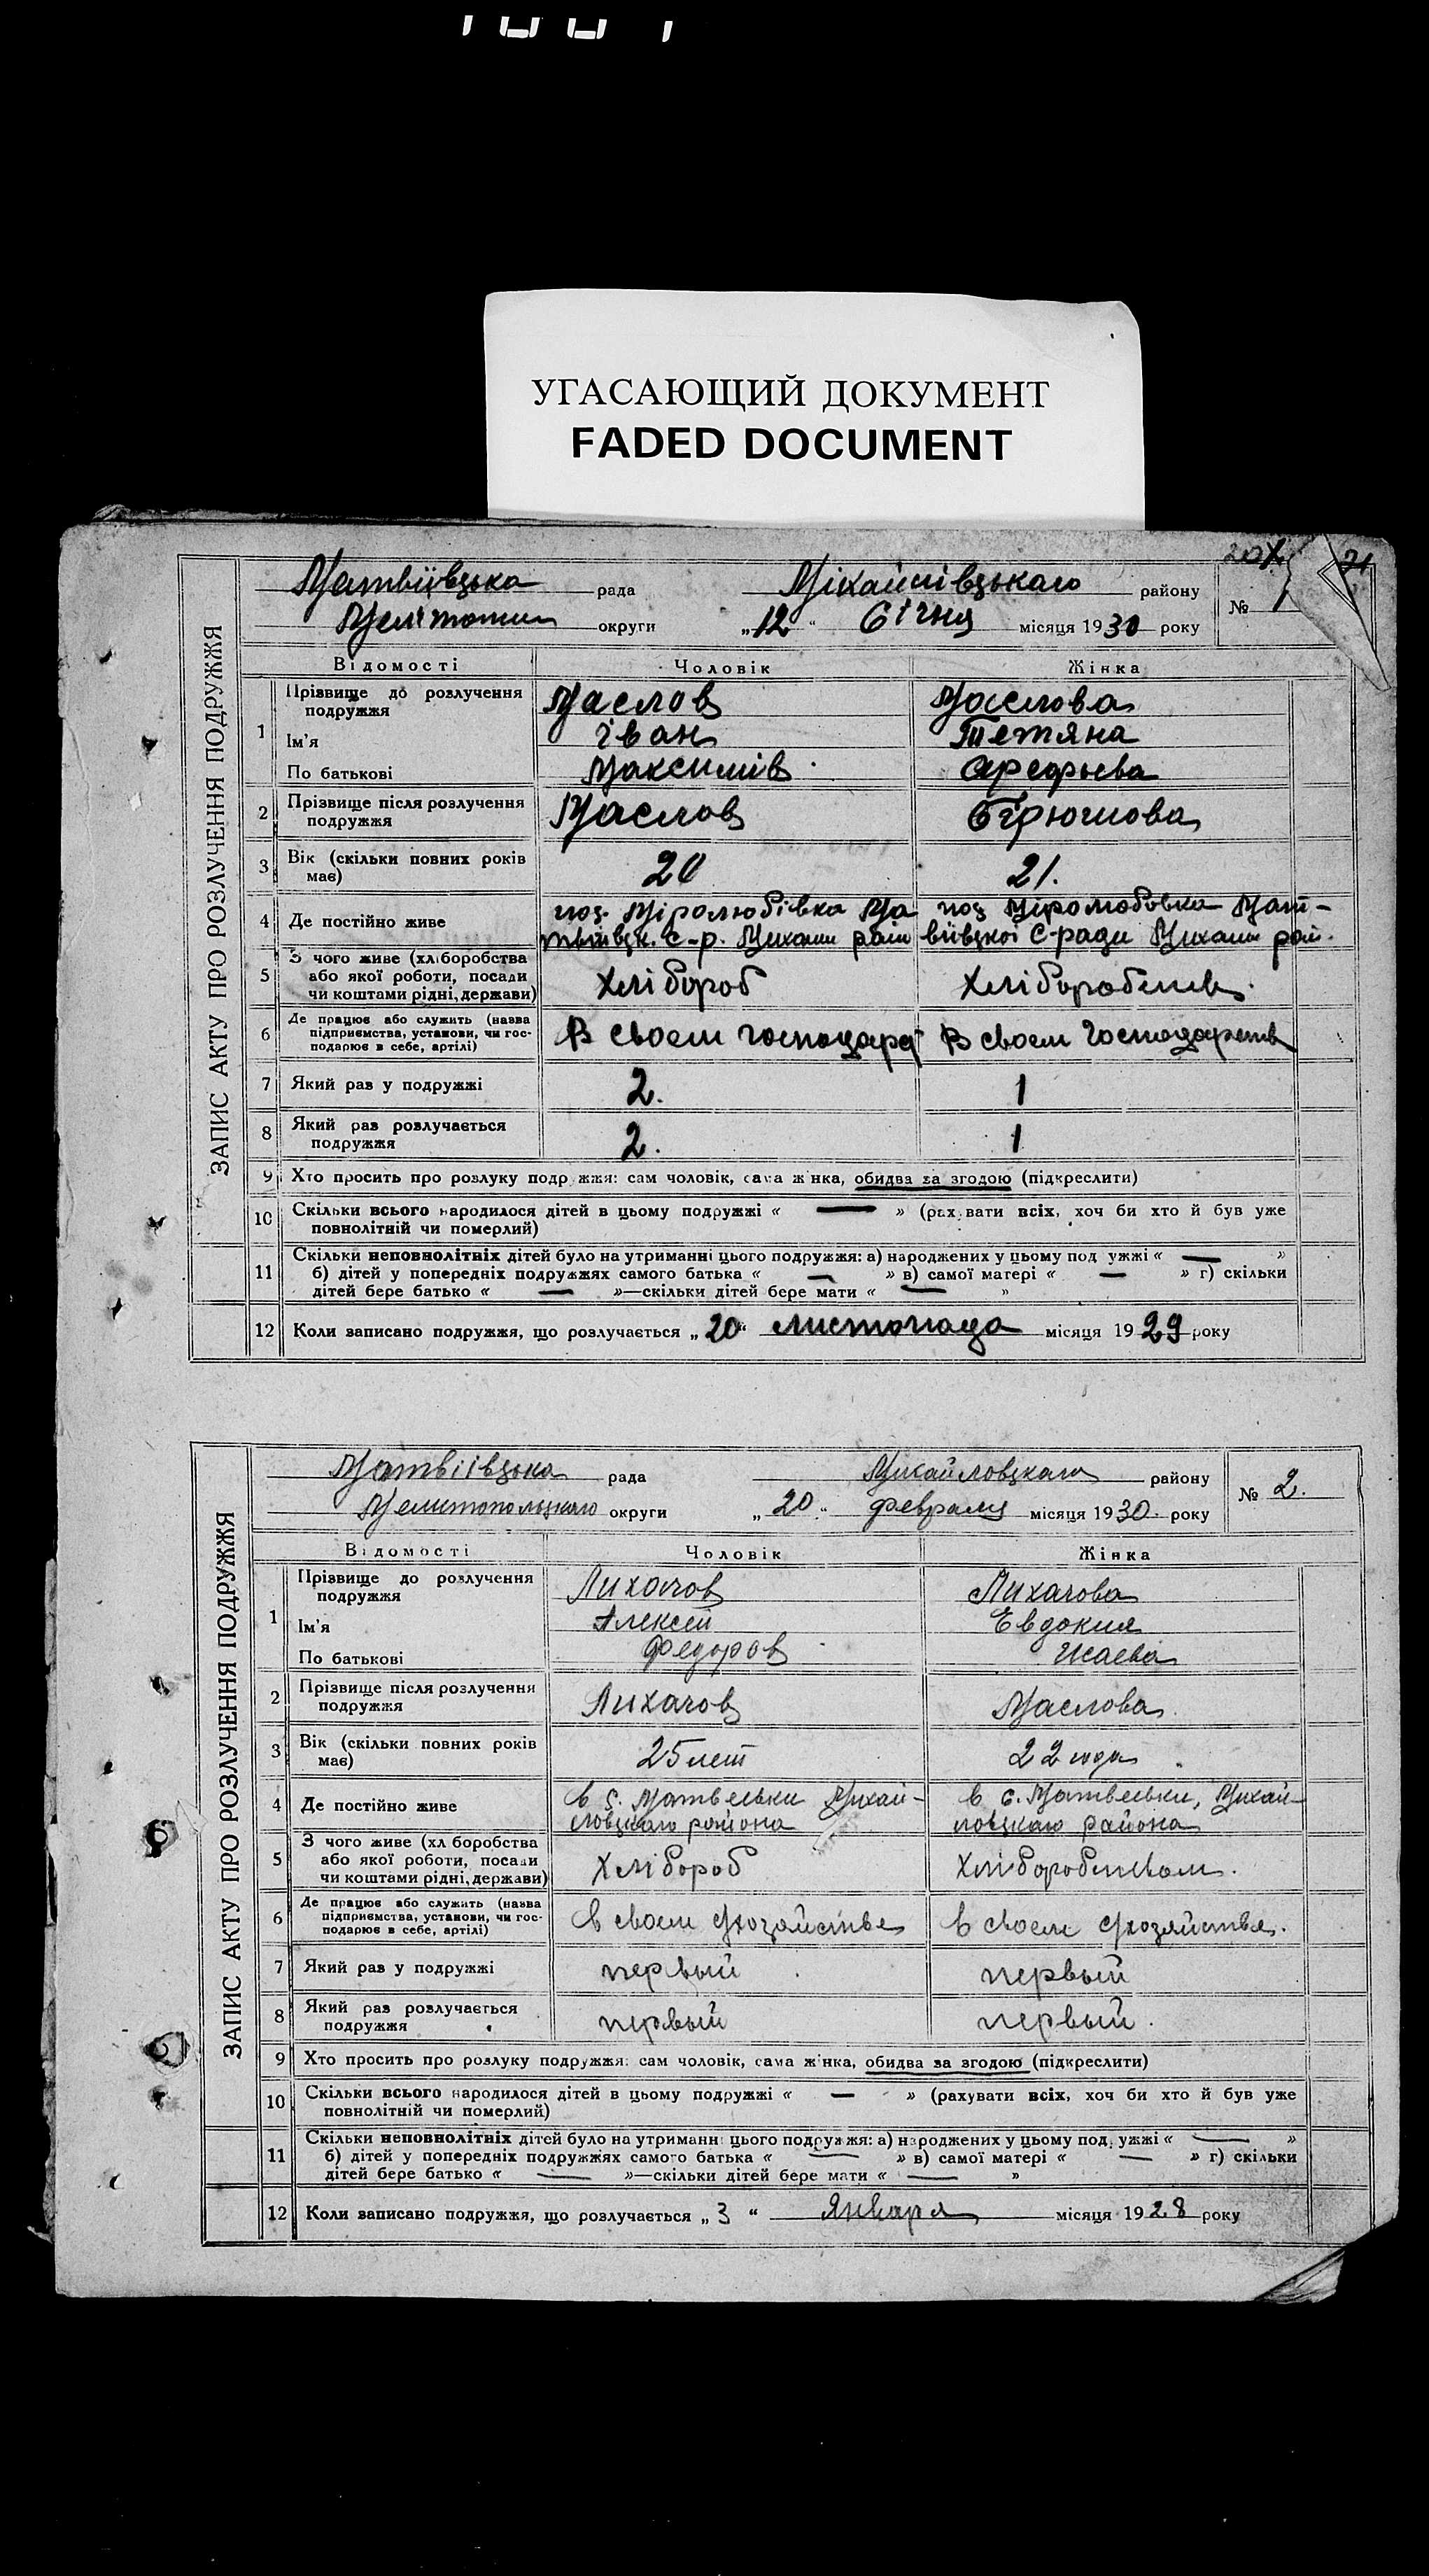 УГАСАЮЩИЙ ДОКУМЕНТ
FADED DOCUMENT
21
ЗАПИС АКТУ ПРО РОЗЛУЧЕННЯ ПОДРУЖЖЯ
Матвіівська рада Міхайлівського району № 1
округи „12“ Січня місяця 1930 року
Відомості Чоловік Жінка
1 Прізвище до розлучення Маслов Маслова
подружжя
Ім'я Іван Тетяна
По батькові Максимів Арефьева
2 Прізвище після розлучення Маслов
подружжя
3 Вік (скільки повних років 20 21.
має)
4 Де постійно живе пос. Міролюбівка Ма пос Міролюбовка Мат-
с-р. Михайл район віівської С-ради Михайл рай.
5 З чого живе (хліборобства Хлібороб
або якої роботи, посади
чи коштами рідні, держави)
6 Де працює або служить (назва В своем господарст В своем господарств
підприємства, установи, чи гос-
подарює в себе, артілі)
7 Який раз у подружжі 2. 1
8 Який раз розлучається 2. 1
подружжя
9 Хто просить про розлуку подружжя: сам чоловік, сама жінка, обидва за згодою (підкреслити)
10 Скільки всього народилося дітей в цьому подружжі « — » (рахувати всіх, хоч би хто й був уже
повнолітній чи померлий)
11 Скільки неповнолітніх дітей було на утриманні цього подружжя: а) народжених у цьому подружжі « — »
б) дітей у попередніх подружжях самого батька « — » в) самої матері « — » г) скільки
дітей бере батько « — »—скільки дітей бере мати « — »
12 Коли записано подружжя, що розлучається „20“ листопада місяця 1929 року
ЗАПИС АКТУ ПРО РОЗЛУЧЕННЯ ПОДРУЖЖЯ
Матвіівська рада Михайловского району № 2.
Мелитопольского округи „20“ февраля місяця 1930 року
Відомості Чоловік Жінка
1 Прізвище до розлучення Лихачов Лихачова
подружжя
Ім'я Алексей Евдокия
По батькові Федоров Исаева
2 Прізвище після розлучення Лихачов Маслова
подружжя
3 Вік (скільки повних років 25 лет 22 года
має)
4 Де постійно живе в с. Матвеевки Михай- в с. Матвеевки, Михай-
ловского района ловского района
5 З чого живе (хліборобства Хлібороб Хліборобством.
або якої роботи, посади
чи коштами рідні, держави)
6 Де працює або служить (назва в своем хозяйстве в своем хозяйстве.
підприємства, установи, чи гос-
подарює в себе, артілі)
7 Який раз у подружжі первый первый
8 Який раз розлучається первый первый.
подружжя
9 Хто просить про розлуку подружжя: сам чоловік, сама жінка, обидва за згодою (підкреслити)
10 Скільки всього народилося дітей в цьому подружжі « — » (рахувати всіх, хоч би хто й був уже
повнолітній чи померлий)
11 Скільки неповнолітніх дітей було на утриманні цього подружжя: а) народжених у цьому подружжі « — »
б) дітей у попередніх подружжях самого батька « — » в) самої матері « — » г) скільки
дітей бере батько « — »—скільки дітей бере мати « — »
12 Коли записано подружжя, що розлучається „3“ Января місяця 1928 року